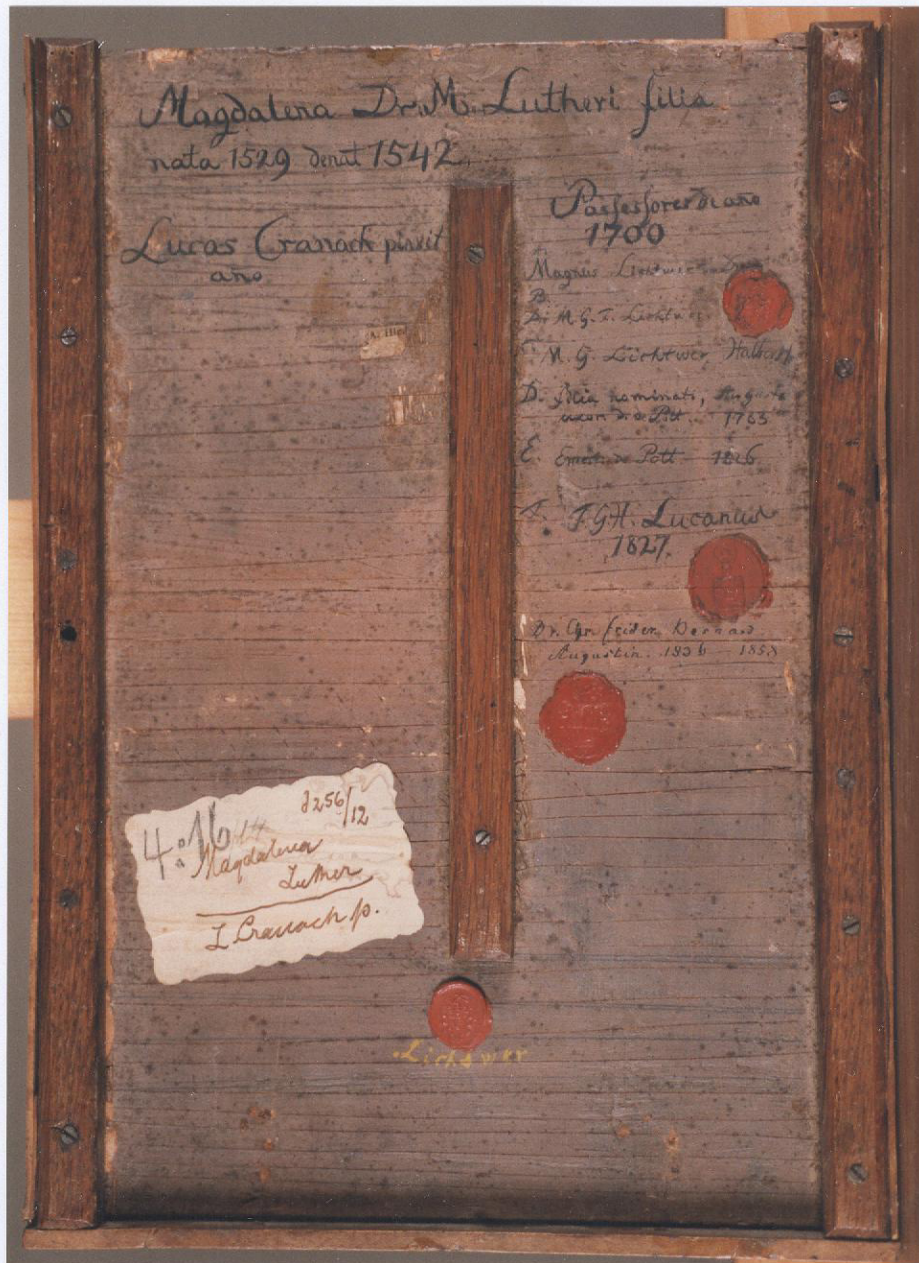 Magdalena Dr. M. Lutheri filia
nata 1529 denat 1542
Lucas Cranach pinxit
año
Possessores de año
1700
Magnus Lichtwer
B.
Dr. M. G. T. Lichtwer
M. G. Lichtwer, Halberst
D. filia nominati, Augusta
uxor 1763
E. Ernest. de Pott 1826
F. F.G.H. Lucanus
1827.
Dr. Chr. frider. Bernard
Augustin. 1836 - 1853
8256/12
4:16
Magdalena
Luther
L Cranach p.
Lichtwer